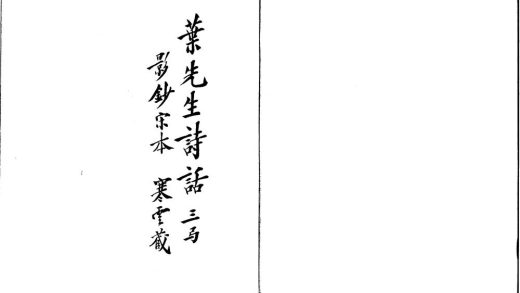 葉先生詩話 三
影鈔宋本 寒雲藏